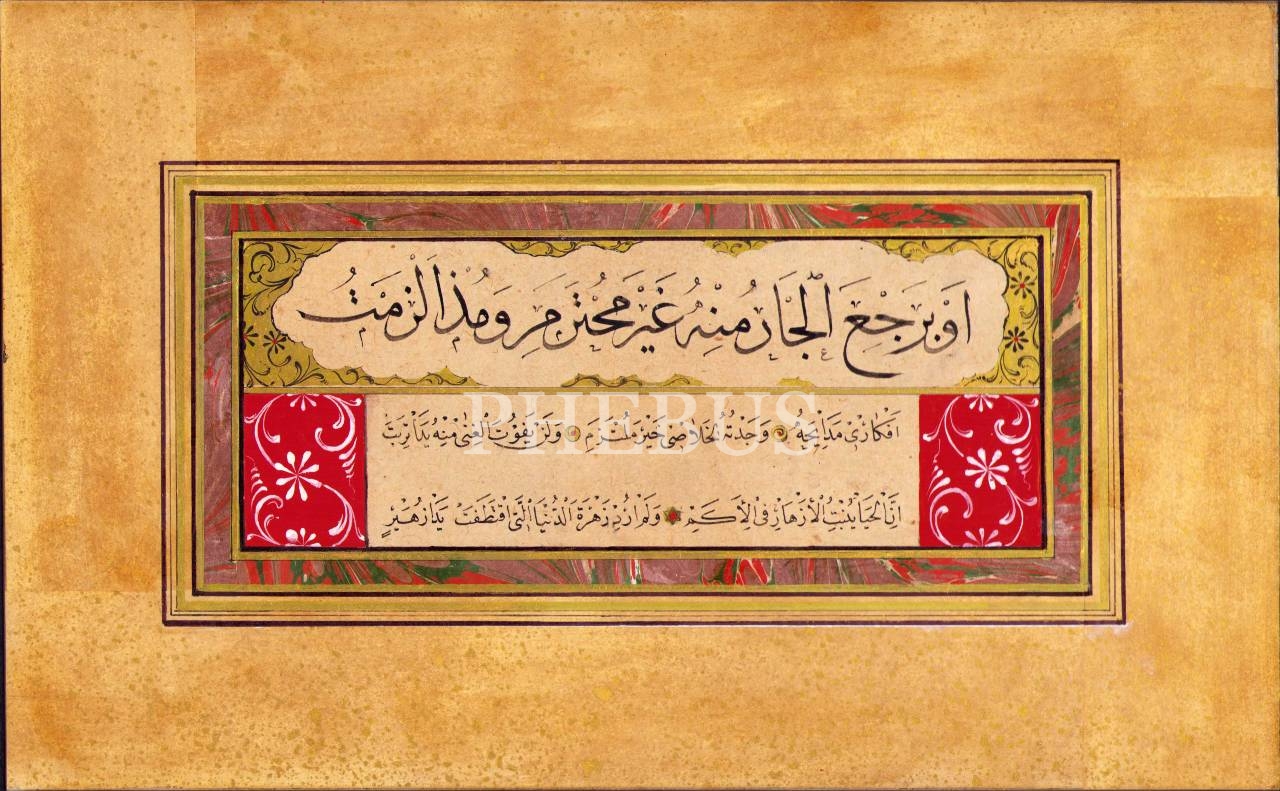 اَوْ يَرْجِعَ الْجَارُ مِنْهُ غَيْرَ مُحْتَرَمِ وَمُذْ اَلْزَمْتُ
اَفْكَارِي مَدَائِحَهُ وَجَدْتُهُ لِخَلَاصِي خَيْرَ مُلْتَزِمِ وَلَنْ يَفُوتَ الْغِنَى مِنْهُ يَدًا تَرِبَتْ
اِنَّ الْحَيَا يُنْبِتُ الْاَزْهَارَ فِي الْاَكَمِ وَلَمْ اُرِدْ زَهْرَةَ الدُّنْيَا الَّتِي اقْتَطَفَتْ يَدَا زُهَيْرٍ
PHEBUS